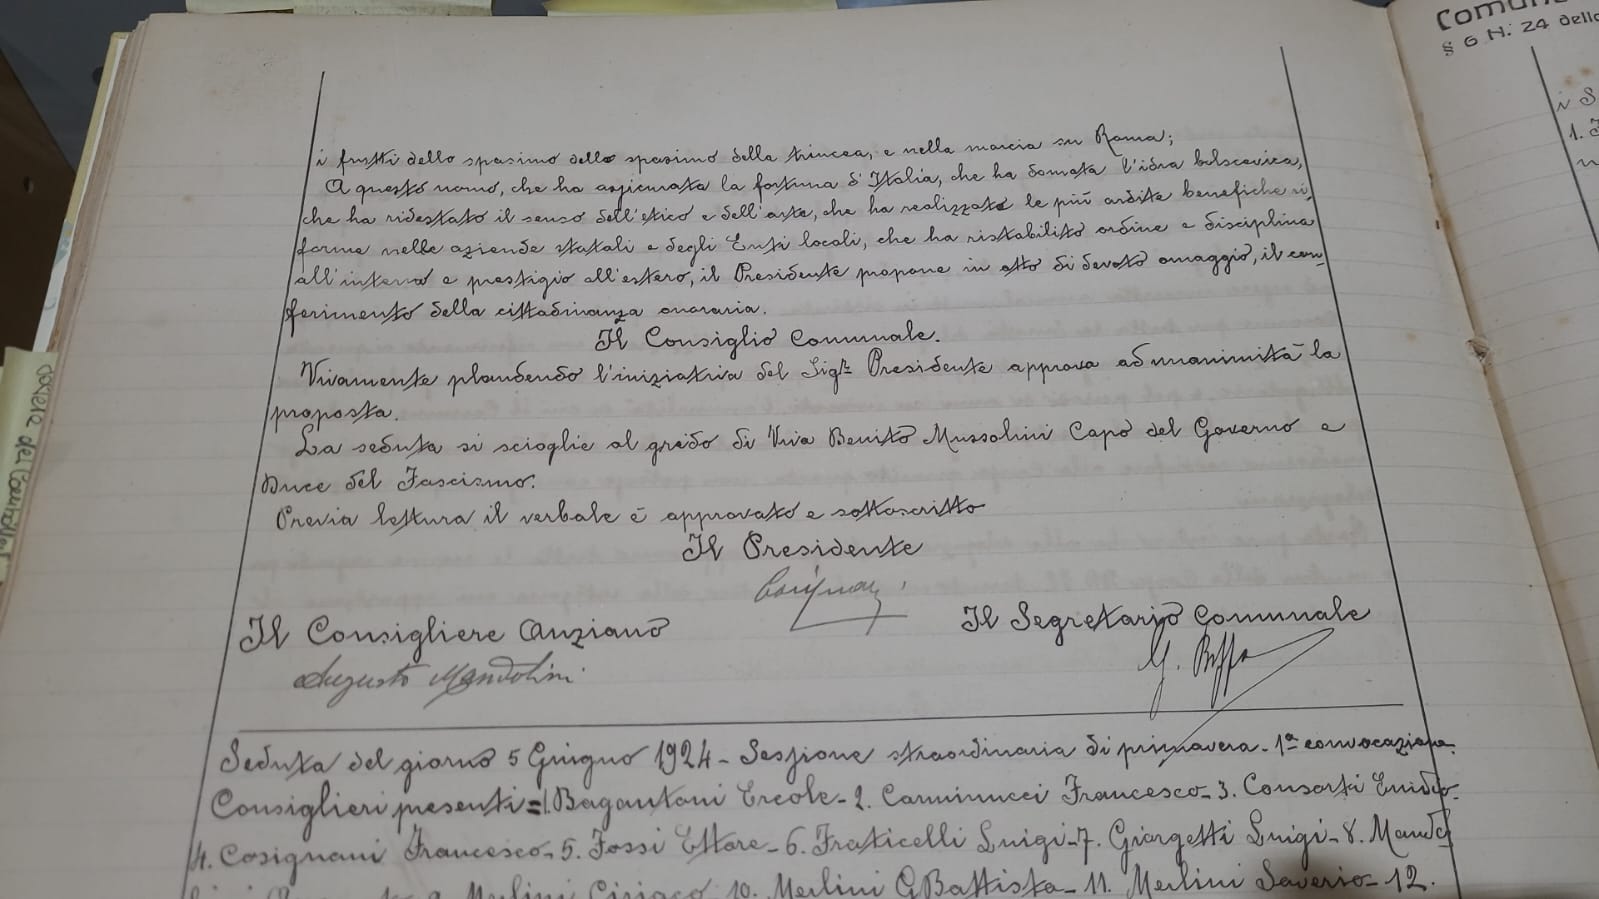 i frutti dello spasimo dello spasimo della trincea, e nella marcia su Roma;
A questo uomo, che ha assicurata la fortuna d'Italia, che ha domata l'idra bolscevica,
che ha ridestato il senso dell'etico e dell'arte, che ha realizzato le più ardite benefiche ri-
forme nelle aziende statali e degli Enti locali, che ha ristabilito ordine e disciplina
all'interno e prestigio all'estero, il Presidente propone in atto di devoto omaggio, il con-
ferimento della cittadinanza onoraria.
Il Consiglio Comunale.
Vivamente plaudendo l'iniziativa del Sigr. Presidente approva ad unanimità la
proposta.
La seduta si scioglie al grido di Viva Benito Mussolini Capo del Governo e
Duce del Fascismo.
Previa lettura il verbale è approvato e sottoscritto
Il Presidente
Il Consigliere Anziano
Il Segretario Comunale
Augusto Mandolini
Seduta del giorno 5 Giugno 1924 - Sessione straordinaria di primavera - 1ª convocazione.
Consiglieri presenti = 1. Bagantoni Ercole - 2. Carminucci Francesco - 3. Consorti Enidio -
4. Cosignani Francesco - 5. Fossi Ettore - 6. Fraticelli Luigi - 7. Giorgetti Luigi - 8. Mando
9. Merlini Ciriaco 10. Merlini G Battista - 11. Merlini Saverio - 12.
Comun
§ 6 N: 24 dello
1.